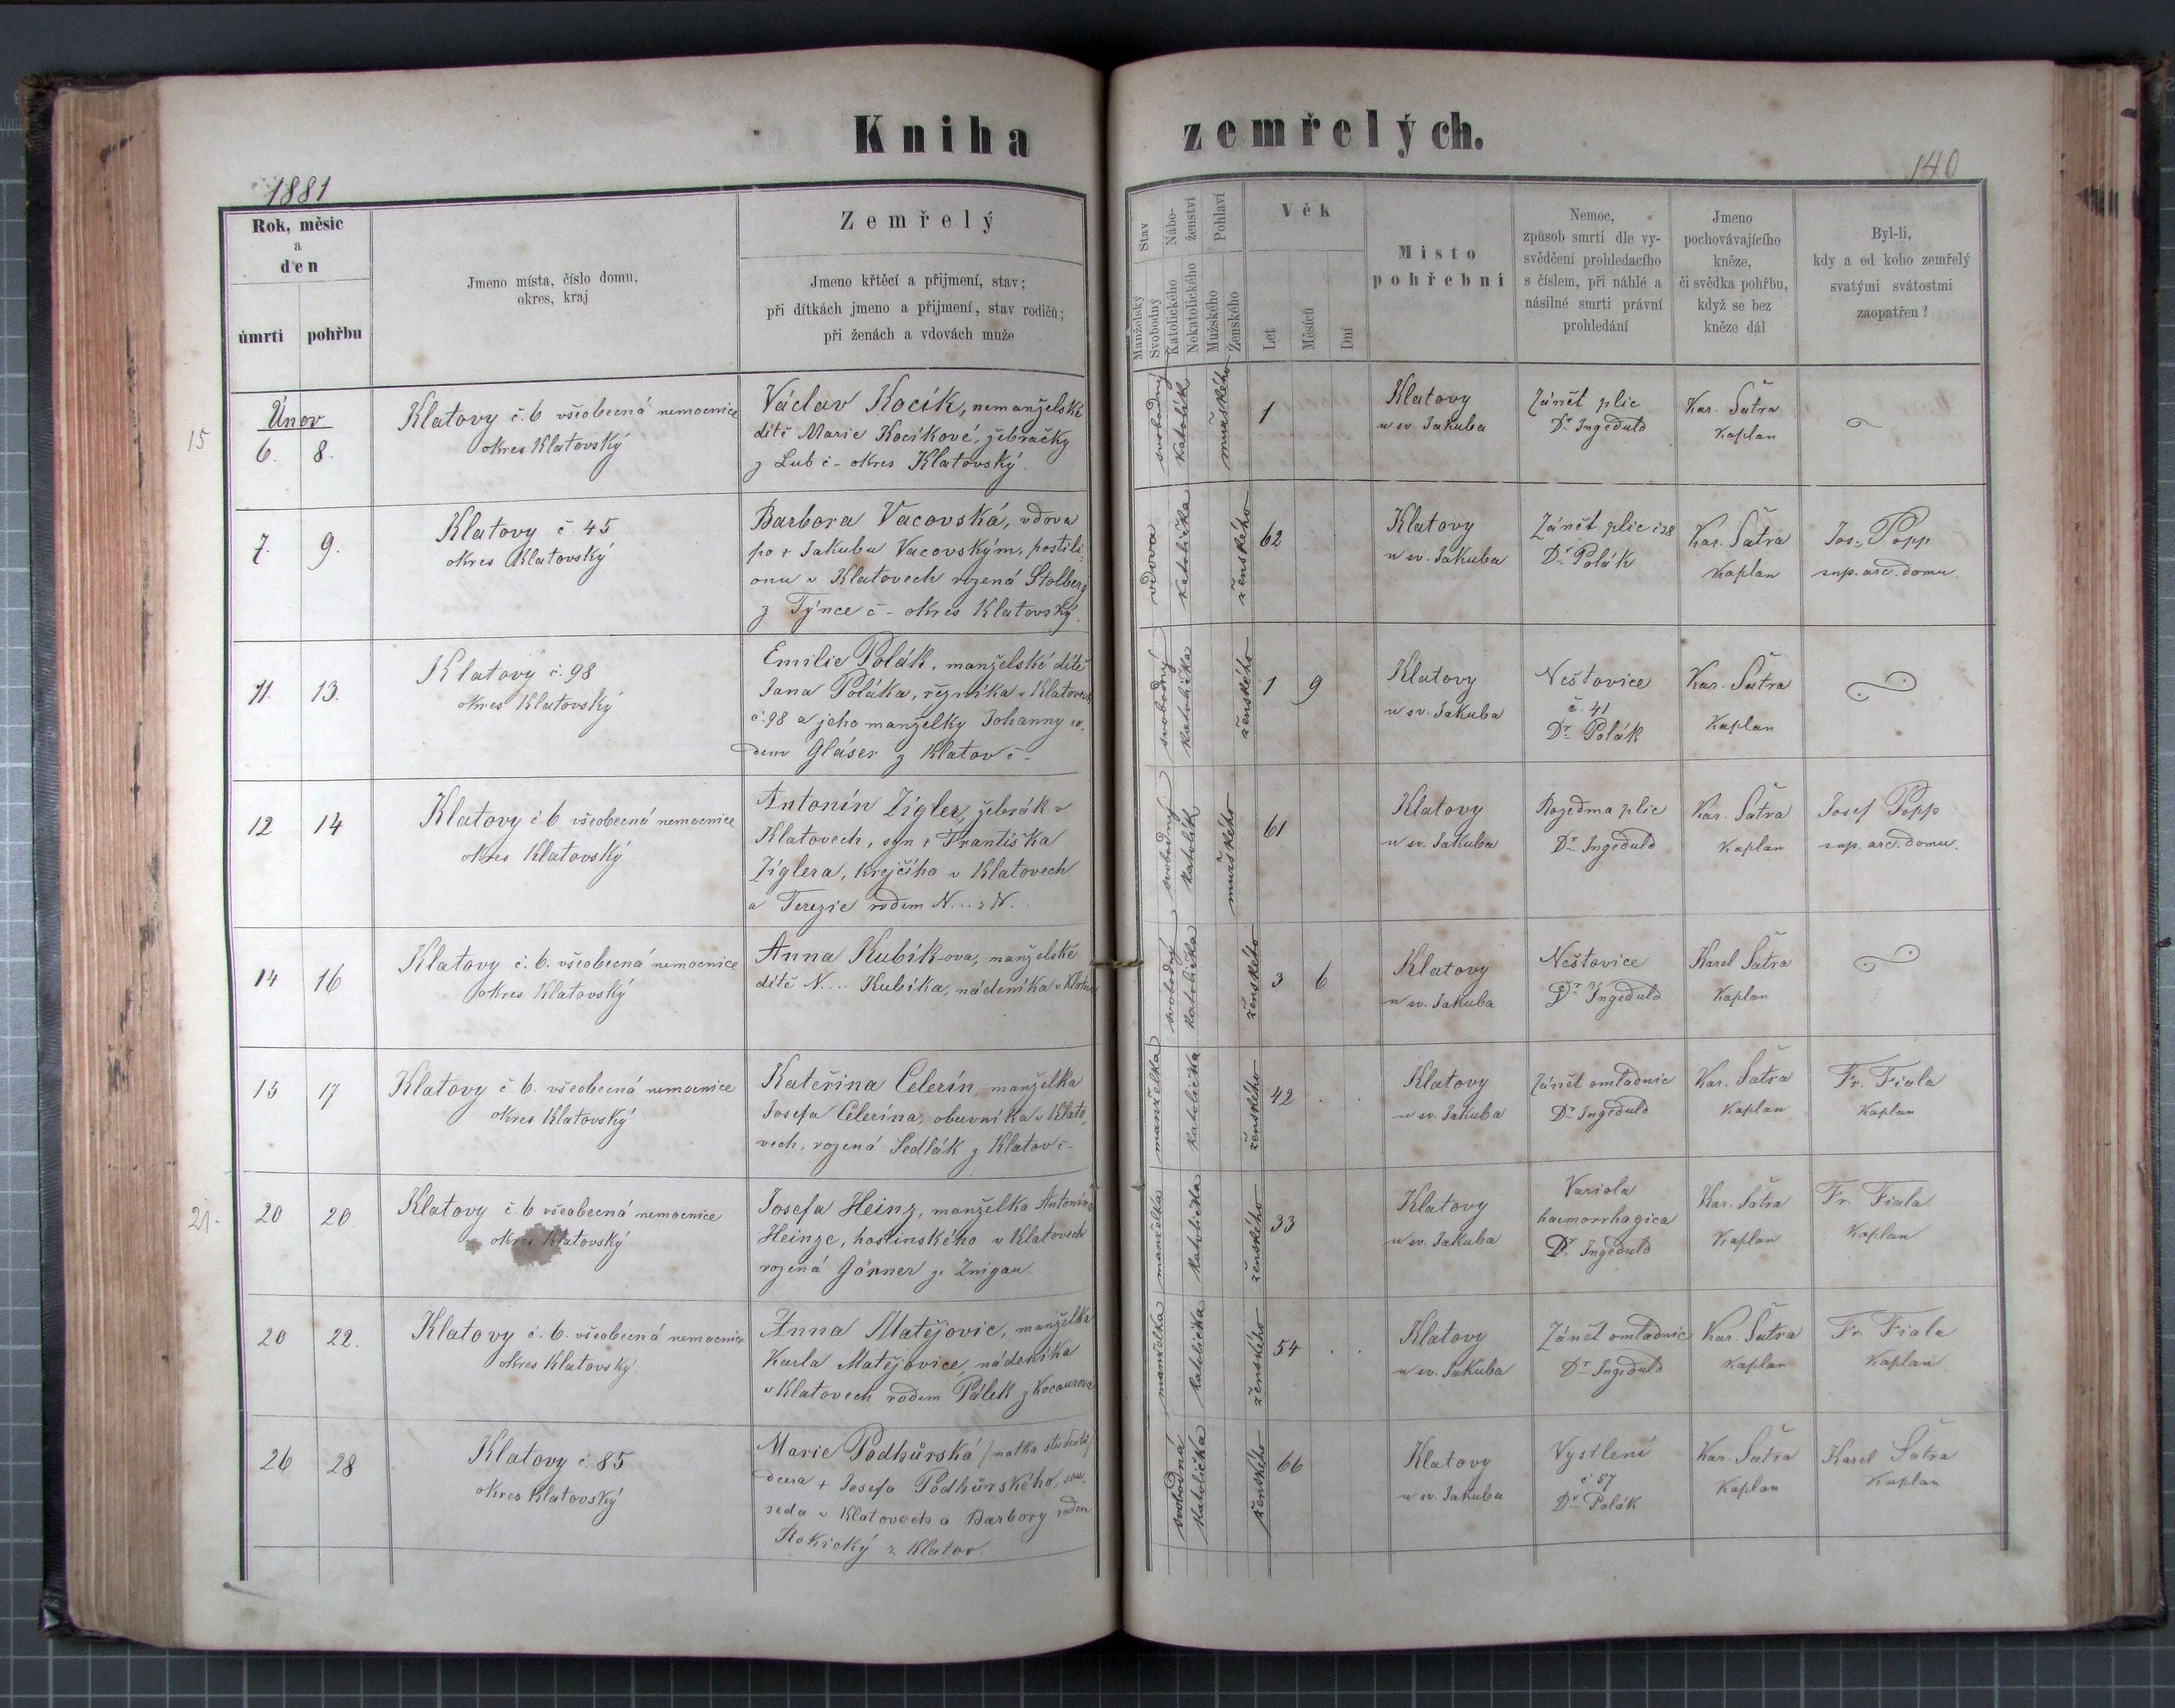 Kniha zemřelých.
1881
140
Rok, měsíc
a
den
úmrtí
pohřbu
Jmeno místa, číslo domu,
okres, kraj
Zemřelý
Jmeno křtěcí a přijmení, stav;
při dítkách jmeno a přijmení, stav rodičů;
při ženách a vdovách muže
Stav
Manželský
Svobodný
Nábo-
ženství
Katolického
Nekatolického
Pohlaví
Mužského
Ženského
Věk
Let
Měsíců
Dní
Místo
pohřební
Nemoc,
způsob smrti dle vy-
svědčení prohledacího
s číslem, při náhlé a
násilné smrti právní
prohledání
Jmeno
pochovávajícího
kněze,
či svědka pohřbu,
když se bez
kněze dál
Byl-li,
kdy a od koho zemřelý
svatými svátostmi
zaopatřen?
15
Únor
6. 8.
Klatovy č. 6 všeobecná nemocnice
okres Klatovský
Václav Kocík, nemanželské
dítě Marie Kocíkové, žebračky
z Lub č - okres Klatovský.
svobodný
katolík
mužského
1
Klatovy
u sv. Jakuba
Zánět plic
Dr. Ingeduld
Kar. Šatra
Kaplan
7. 9.
Klatovy č. 45
okres Klatovský
Barbora Vacovská, vdova
po + Jakubu Vacovským, postili-
onu v Klatovech rozená Stolberg
z Týnce č - okres Klatovský.
vdova
katolička
ženského
62
Klatovy
u sv. Jakuba
Zánět plic č 38
Dr. Polák
Kar. Šatra
Kaplan
Jos. Popp
sup. arc. domu.
11. 13.
Klatovy č. 98
okres Klatovský
Emilie Polák, manželské dítě
Jana Poláka, řezníka v Klatovech
č. 98 a jeho manželky Johanny ro-
dem Gláser z Klatov č -
svobodný
katolička
ženského
1 9
Klatovy
u sv. Jakuba
Neštovice
č. 41
Dr. Polák
Kar. Šatra
Kaplan
12 14
Klatovy č 6 všeobecná nemocnice
okres Klatovský
Antonín Zígler, žebrák v
Klatovech, syn + Františka
Zíglera, krejčího v Klatovech
a Terezie rodem N... z N.
svobodný
katolík
mužského
61
Klatovy
u sv. Jakuba
Rozedma plic
Dr. Ingeduld
Kar. Šatra
Kaplan
Josef Popp
sup. arc. domu.
14 16
Klatovy č. 6. všeobecná nemocnice
okres Klatovský
Anna Kubík-ova, manželské
dítě N... Kubíka, nádeníka v Klatov
svobodný
katolička
ženského
3 6
Klatovy
u sv. Jakuba
Neštovice
Dr. Ingeduld
Karel Šatra
Kaplan
15 17
Klatovy č 6. všeobecná nemocnice
okres Klatovský
Kateřina Celerín, manželka
Josefa Celerína, obuvníka v Klato
vech, rozená Sedlák z Klatov č -
manželka
katolička
ženského
42
Klatovy
u sv. Jakuba
Zánět omladnic
Dr. Ingeduld
Kar. Šatra
Kaplan
Fr. Fiala
Kaplan
21.
20 20
Klatovy č. 6 všeobecná nemocnice
okres Klatovský
Josefa Heinz, manželka Antonína
Heinze, hostinského v Klatovech
rozená Gönner ze Znigau
manželka
katolička
ženského
33
Klatovy
u sv. Jakuba
Variola
haemorrhagica
Dr. Ingeduld
Kar. Šatra
Kaplan
Fr. Fiala
Kaplan
20 22.
Klatovy č. 6. všeobecná nemocnice
okres Klatovský.
Anna Matějovic, manželka
Karla Matějovice, nádeníka
v Klatovech rodem Pálek z Kocourova
manželka
katolička
ženského
54
Klatovy
u sv. Jakuba
Zánět omladnic
Dr. Ingeduld
Kar. Šatra
Kaplan
Fr. Fiala
Kaplan
26 28
Klatovy č. 85
okres Klatovský
Marie Podhůrská /matka studentů/
dcera + Josefa Podhůrského, sou-
seda v Klatovech a Barbory rodem
Rokický z Klatov.
svobodná
katolička
ženského
66
Klatovy
u sv. Jakuba
Vysílení
č 57
Dr. Polák
Kar. Šatra
Kaplan
Karel Šatra
Kaplan